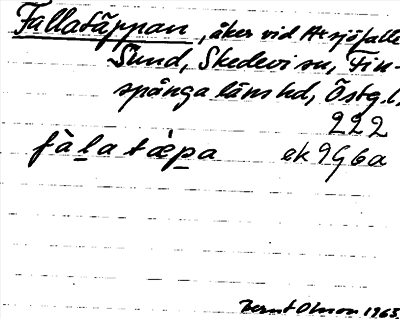 Fallatäppan, åker vid Årsjöfalle
Sund, Skedevi sn, Fin-
spånga läns hd, Östg.l.
222
fàl̲a tæ̀p̲a ek 9G6a
Bernt Olsson 1965.